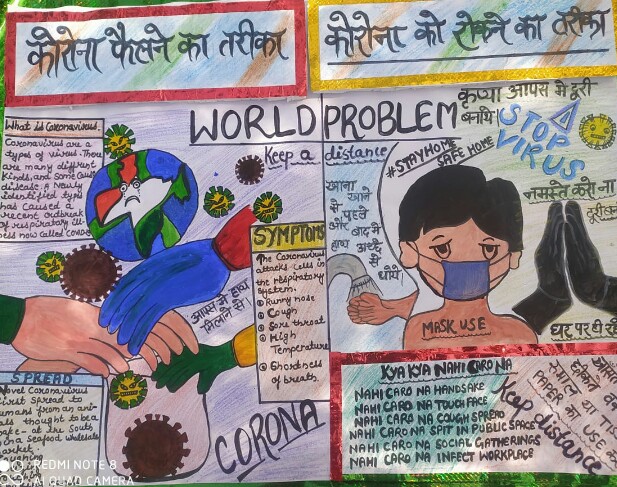 कोरोना फैलने का तरीका
कोरोना को रोकने का तरीका
WORLD PROBLEM
What is Coronavirus.
Coronavirus are a
types of virus. There
are many diffrent
kinds, and some cause
disease. A newly
identified type
has caused a
recent outbreak
of respiratory ill-
ness now called COVID
Keep a distance
कृप्या आपस मे दूरी
बनाये।
STOP
VIRUS
#STAYHOME
SAFE HOME
नमस्ते करो ना
खाना
खाने
से पहले
और बाद मे
हाथ अच्छे से
धोये।
SYMPTOMS
The Coronavirus
attacks cells in
the respiratory
system.
Runny nose
Cough
Sore throat
High
Temperature
Shortness
of breath.
आपस मे हाथ
मिलाने से।
MASK USE
घर पर ही
SPREAD
Novel Coronavirus
first spread to
humans from an ani-
mals thought to be a
in a seafood wholesale
market.
CORONA
KYA KYA NAHI CARO NA
NAHI CARO NA HANDSAKE
NAHI CARO NA TOUCH FACE
NAHI CARO NA COUGH SPREAD
NAHI CARO NA SPIT IN PUBLIC SPACE
NAHI CARO NA SOCIAL GATHERINGS
NAHI CARO NA INFECT WORKPLACE
Keep distance
छीकते वक्त
रुमाल या
PAPER का USE
REDMI NOTE 8
AI QUAD CAMERA